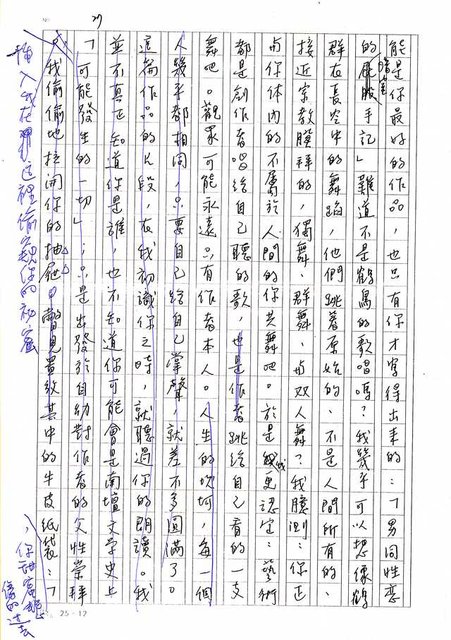 能是你最好的作品，也只有你才寫得出來的：「男同性戀
的屁股手記」難道不是鶴鳥的歌唱嗎？我幾乎可以想像鶴
群在長空中的舞蹈，他們跳著原始的、不是人間所有的、
接近宗教膜拜的，獨舞、群舞、與双人舞？我臆測：你正
與你体內的不屬於人間的你共舞吧。於是我更認定：藝術
都是創作者唱給自己聽的歌，也是作者跳給自己看的一支
舞吧。觀眾可能永遠只有作者本人。人生的坎坷，每一個
人幾乎都相同，只要自己給自己掌聲，就差不多圓滿了。
這篇作品的片段，在我初識你之時，就聽過你的朗讀。我
並不真正知道你是誰，也不知道你可能會是南壇文學史上
「可能發生的一切」；只是出發於自幼對作者的父性崇拜
，我偷偷地拉開你的抽屜，看見置放其中的牛皮紙袋：「
插入我在那這裡偷窺你的初蜜
，你甜蜜
的過去
25-12